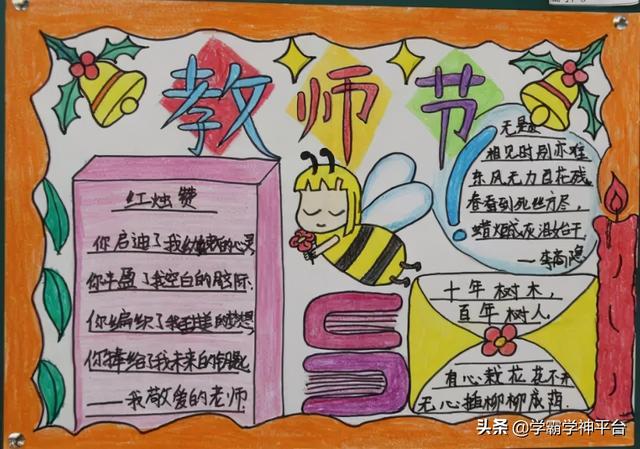 教师节
红烛赞
你启迪了我的心灵
你丰盈了我空白的脑际.
你编织了我的梦想
你捧给了我未来的钥匙
——我敬爱的老师.
无题
相见时别亦难
东风无力百花残.
春到死丝方尽,
蜡成灰泪始干,
——李商隐
十年树木,
百年树人
有心栽花花不开
无心插柳柳成荫.
头条 @学霸学神平台